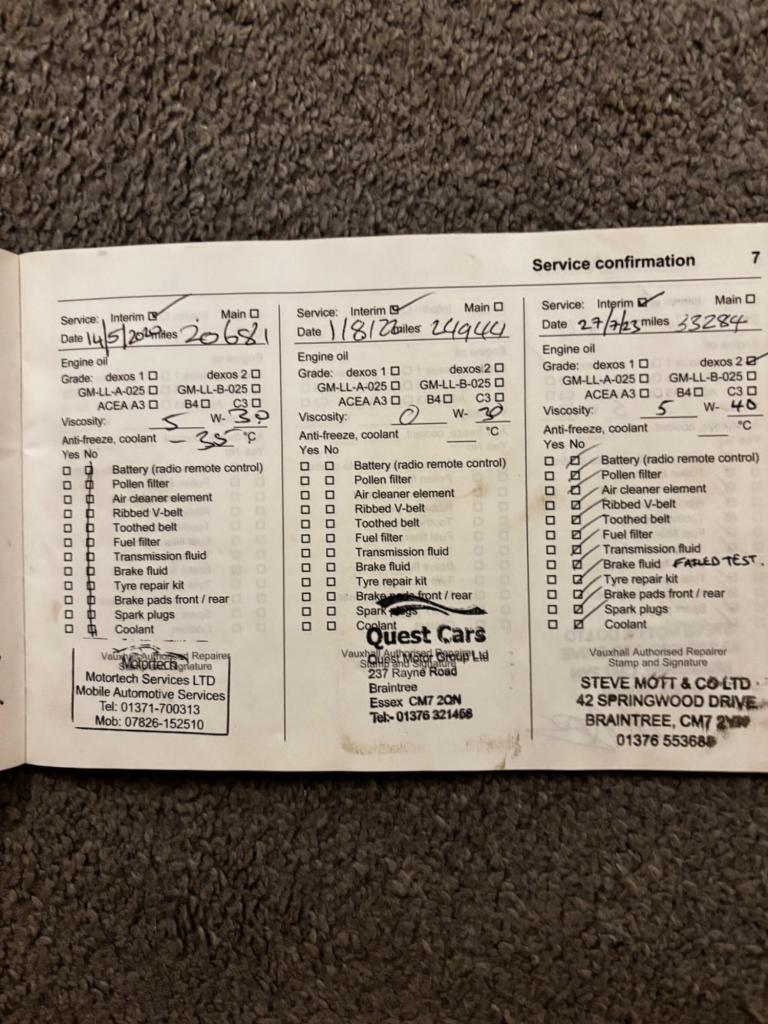 Service confirmation 7
Service: Interim Main
Date 14/5/2020 miles 20681
Engine oil
Grade: dexos 1 dexos 2
GM-LL-A-025 GM-LL-B-025
ACEA A3 B4 C3
Viscosity: 5 W- 30
Anti-freeze, coolant - 35 °C
Yes No
Battery (radio remote control)
Pollen filter
Air cleaner element
Ribbed V-belt
Toothed belt
Fuel filter
Transmission fluid
Brake fluid
Tyre repair kit
Brake pads front / rear
Spark plugs
Coolant
Vauxhall Authorised Repairer
Motortech Signature
Motortech Services LTD
Mobile Automotive Services
Tel: 01371-700313
Mob: 07826-152510
Service: Interim Main
Date 1/8/22 miles 24944
Engine oil
Grade: dexos 1 dexos 2
GM-LL-A-025 GM-LL-B-025
ACEA A3 B4 C3
Viscosity: 0 W- 30
Anti-freeze, coolant °C
Yes No
Battery (radio remote control)
Pollen filter
Air cleaner element
Ribbed V-belt
Toothed belt
Fuel filter
Transmission fluid
Brake fluid
Tyre repair kit
Brake pads front / rear
Spark plugs
Coolant
Quest Cars
Vauxhall Authorised Repairer
Stamp and Signature
Quest Motor Group Ltd
237 Rayne Road
Braintree
Essex CM7 2QN
Tel:- 01376 321456
Service: Interim Main
Date 27/7/23 miles 33284
Engine oil
Grade: dexos 1 dexos 2
GM-LL-A-025 GM-LL-B-025
ACEA A3 B4 C3
Viscosity: 5 W- 40
Anti-freeze, coolant °C
Yes No
Battery (radio remote control)
Pollen filter
Air cleaner element
Ribbed V-belt
Toothed belt
Fuel filter
Transmission fluid
Brake fluid FAILED TEST.
Tyre repair kit
Brake pads front / rear
Spark plugs
Coolant
Vauxhall Authorised Repairer
Stamp and Signature
STEVE MOTT & CO LTD
42 SPRINGWOOD DRIVE
BRAINTREE, CM7
01376 553684